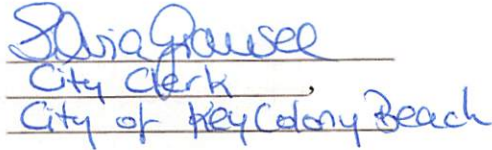 Silvia Gransee
City Clerk,
City of Key Colony Beach